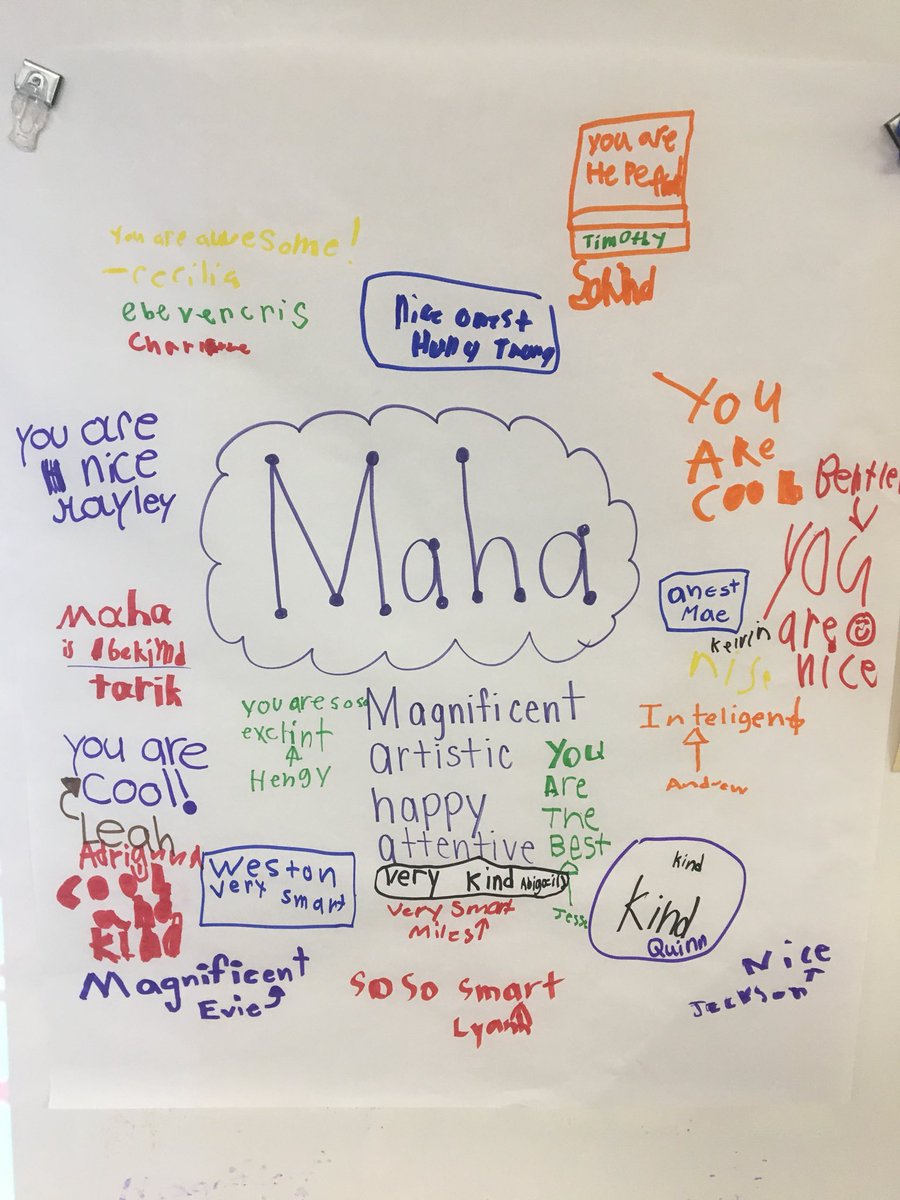 you are
HePeful
TimOthy
you are awesome!
-cecilia
ebevencris
Nice onest
Hully
you are
nice
Hayley
Maha
YOU
ARe
COOL
Bentle
YOU
are
nice
anest
Mae
Keivin
nise
Maha
is
tarik
you are soso
exclint
Hengy
Magnificent
artistic
happy
attentive
Very Kind Abigaily
Very Smart
Miles
You
Are
The
Best
Jesse
Inteligent
Andrew
you are
Cool!
Leah
Cool
and
kind
Weston
very smart
kind
Kind
Quinn
Magnificent
Evie
SO SO smart
Nice
Jackson